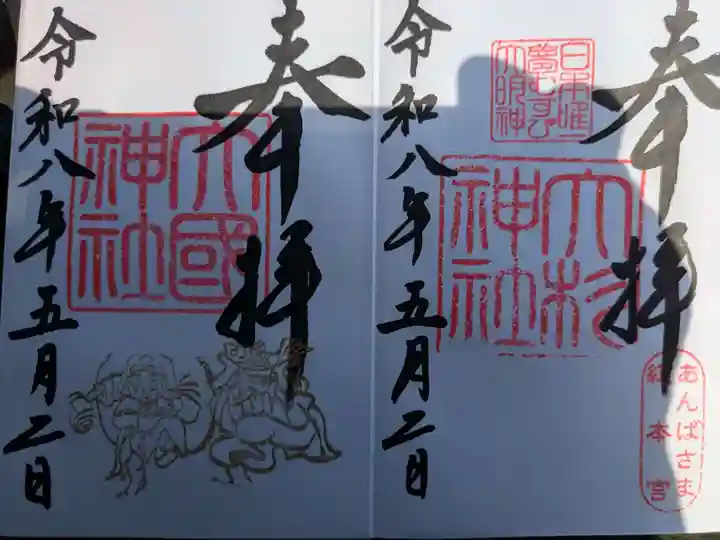 奉拝
大杉神社
日本唯一
夢むすび
大明神
あんばさま
総本宮
令和八年五月二日
奉拝
大國神社
令和八年五月二日